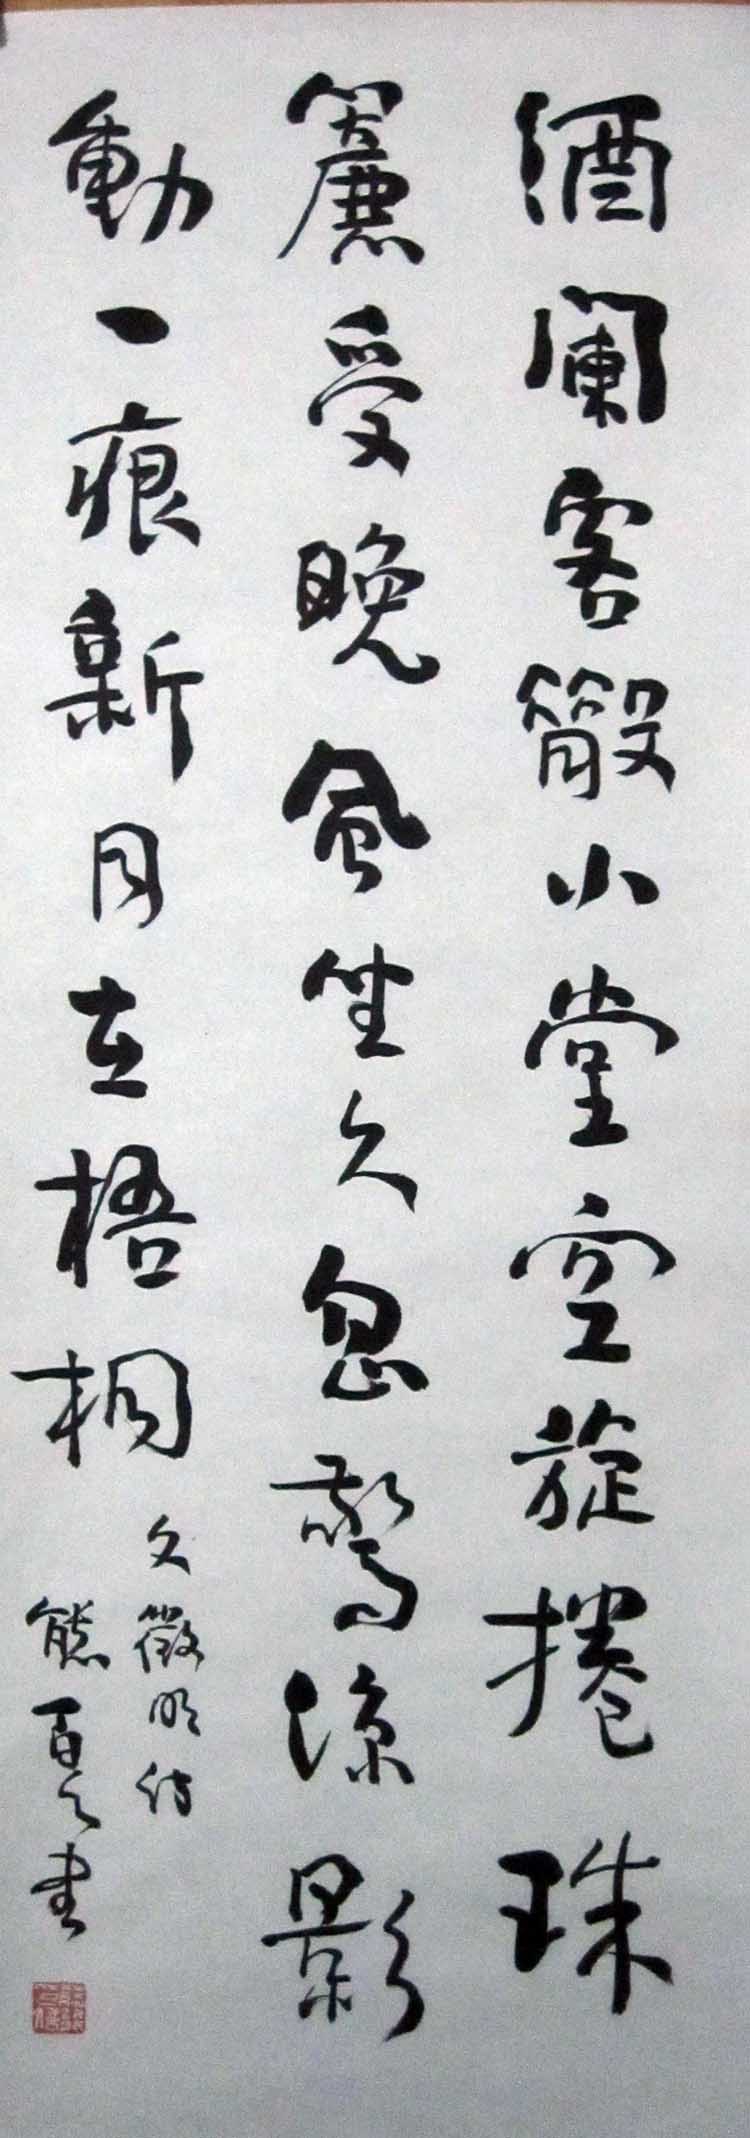 酒闌客散小堂空旋捲珠
簾受晚風坐久忽驚涼影
動一痕新月在梧桐
文徵明詩
熊百之書